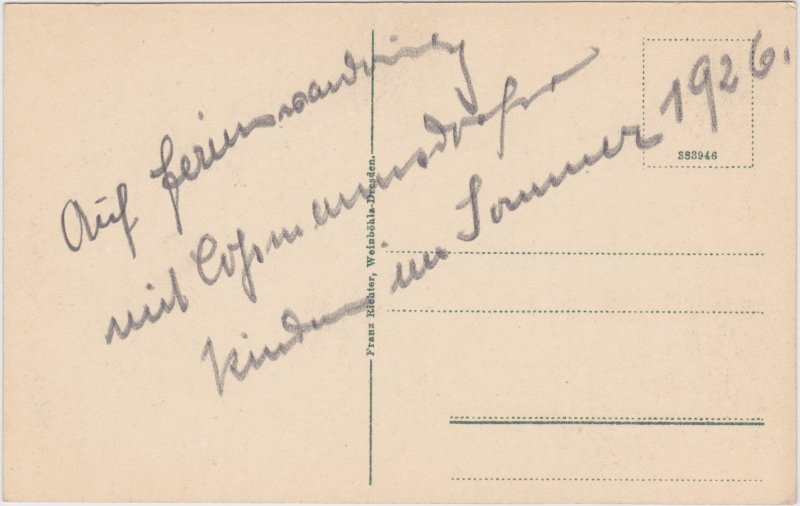 Auf Ferienwanderung
mit Coßmannsdorfer
Kindern im Sommer 1926.
Franz Richter, Weinböhla-Dresden.
383946